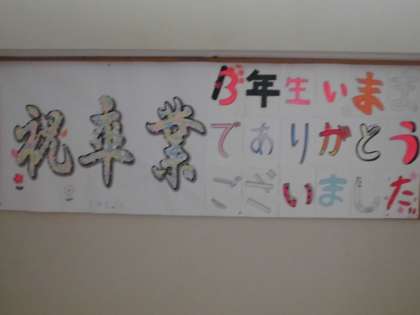 祝卒業
3年生いまま
でありがとう
ございました